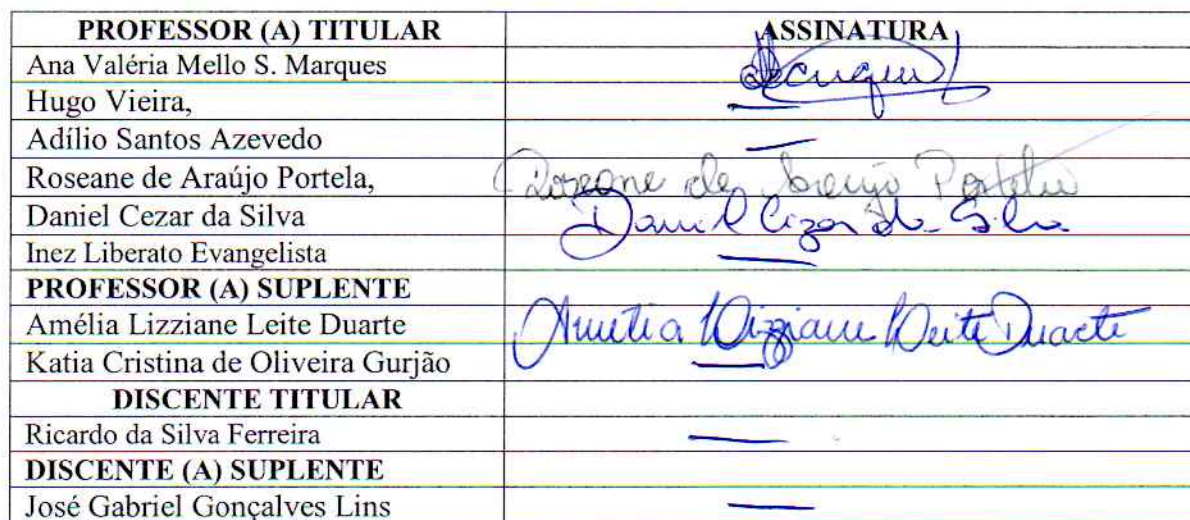 PROFESSOR (A) TITULAR ASSINATURA
Ana Valéria Mello S. Marques
Hugo Vieira, —
Adílio Santos Azevedo —
Roseane de Araújo Portela, Roseane de Araujo Portela
Daniel Cezar da Silva Daniel Cezar da Silva
Inez Liberato Evangelista —
PROFESSOR (A) SUPLENTE
Amélia Lizziane Leite Duarte Amélia Lizziane Leite Duarte
Katia Cristina de Oliveira Gurjão —
DISCENTE TITULAR
Ricardo da Silva Ferreira —
DISCENTE (A) SUPLENTE
José Gabriel Gonçalves Lins —